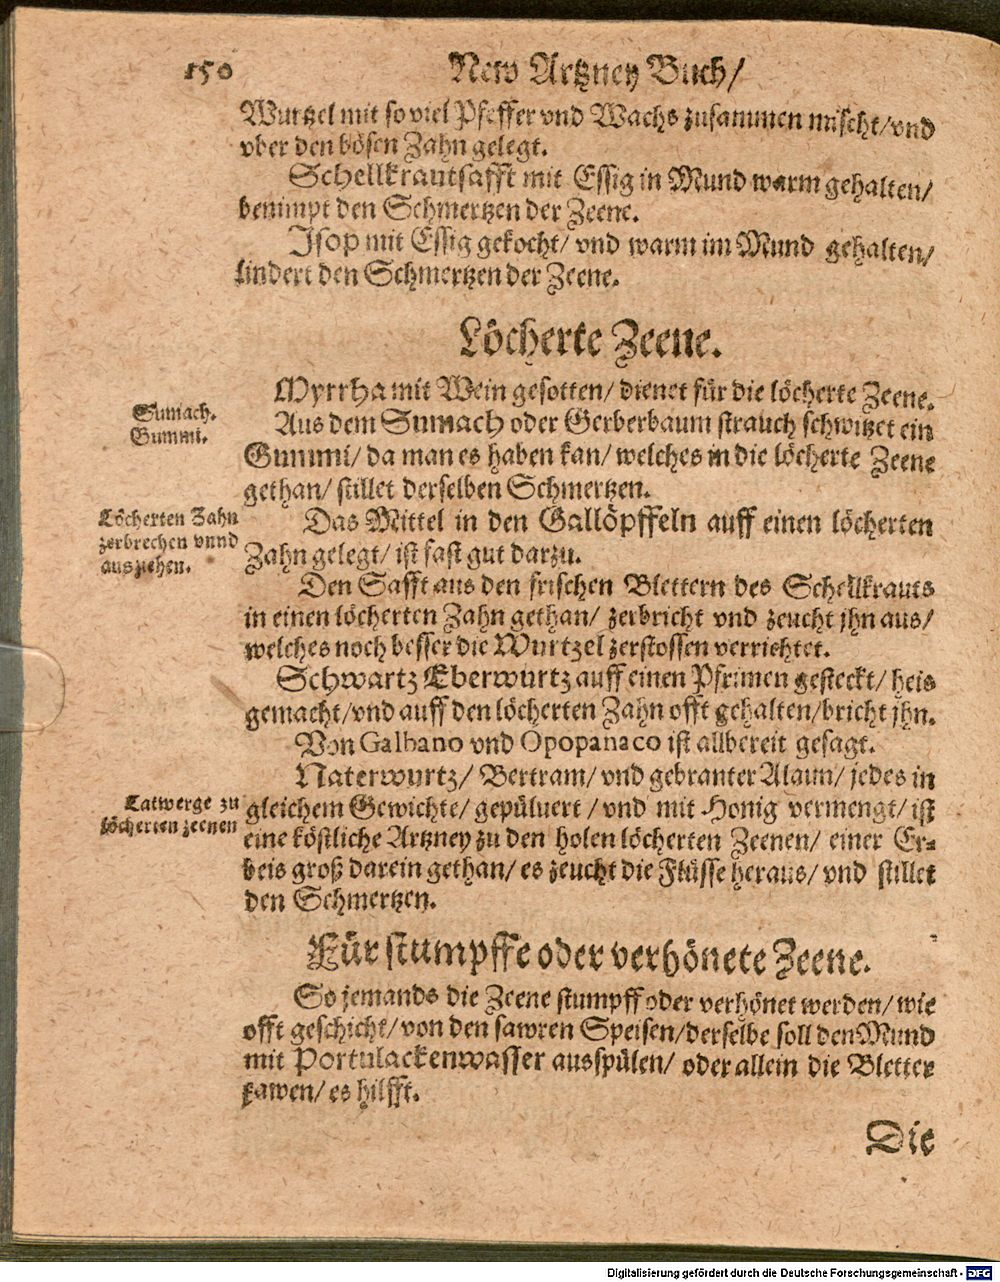 150 New Artzney Buch/
Wurtzel mit so viel Pfeffer vnd Wachs zusammen mischt/vnd
vber den bösen Zahn gelegt.
Schellkrautsafft mit Essig in Mund warm gehalten/
benimpt den Schmertzen der Zeene.
Jsop mit Essig gekocht/ vnd warm im Mund gehalten/
lindert den Schmertzen der Zeene.
Löcherte Zeene.
Myrrha mit Wein gesotten/ dienet für die löcherte Zeene.
Sumach.
Gummi.
Aus dem Sumach oder Gerberbaum strauch schwitzet ein
Gummi/ da man es haben kan/ welches in die löcherte Zeene
gethan/ stillet derselben Schmertzen.
Löcherten Zahn
zerbrechen vnnd
ausziehen.
Das Mittel in den Gallöpffeln auff einen löcherten
Zahn gelegt/ ist fast gut darzu.
Den Safft aus den frischen Blettern des Schellkrauts
in einen löcherten Zahn gethan/ zerbricht vnd zeucht jhn aus/
welches noch besser die Wurtzel zerstossen verrichtet.
Schwartz Eberwurtz auff einen Pfrimen gesteckt/ heis
gemacht/vnd auff den löcherten Zahn offt gehalten/bricht jhn.
Von Galbano vnd Opopanaco ist allbereit gesagt.
Naterwurtz/ Bertram/ vnd gebranter Alaun/ jedes in
Latwerge zu
löcherten zeenen
gleichem Gewichte/ gepüluert / vnd mit Honig vermengt/ ist
eine köstliche Artzney zu den holen löcherten Zeenen/ einer Er⸗
beis groß darein gethan/ es zeucht die Flüsse heraus/ vnd stillet
den Schmertzen.
Für stumpffe oder verhönete Zeene.
So jemands die Zeene stumpff oder verhönet werden/ wie
offt geschicht/ von den sawren Speisen/derselbe soll den Mund
mit Portulackenwasser ausspülen/ oder allein die Bletter
kawen/ es hilfft.
Die
Digitalisierung gefördert durch die Deutsche Forschungsgemeinschaft - DFG